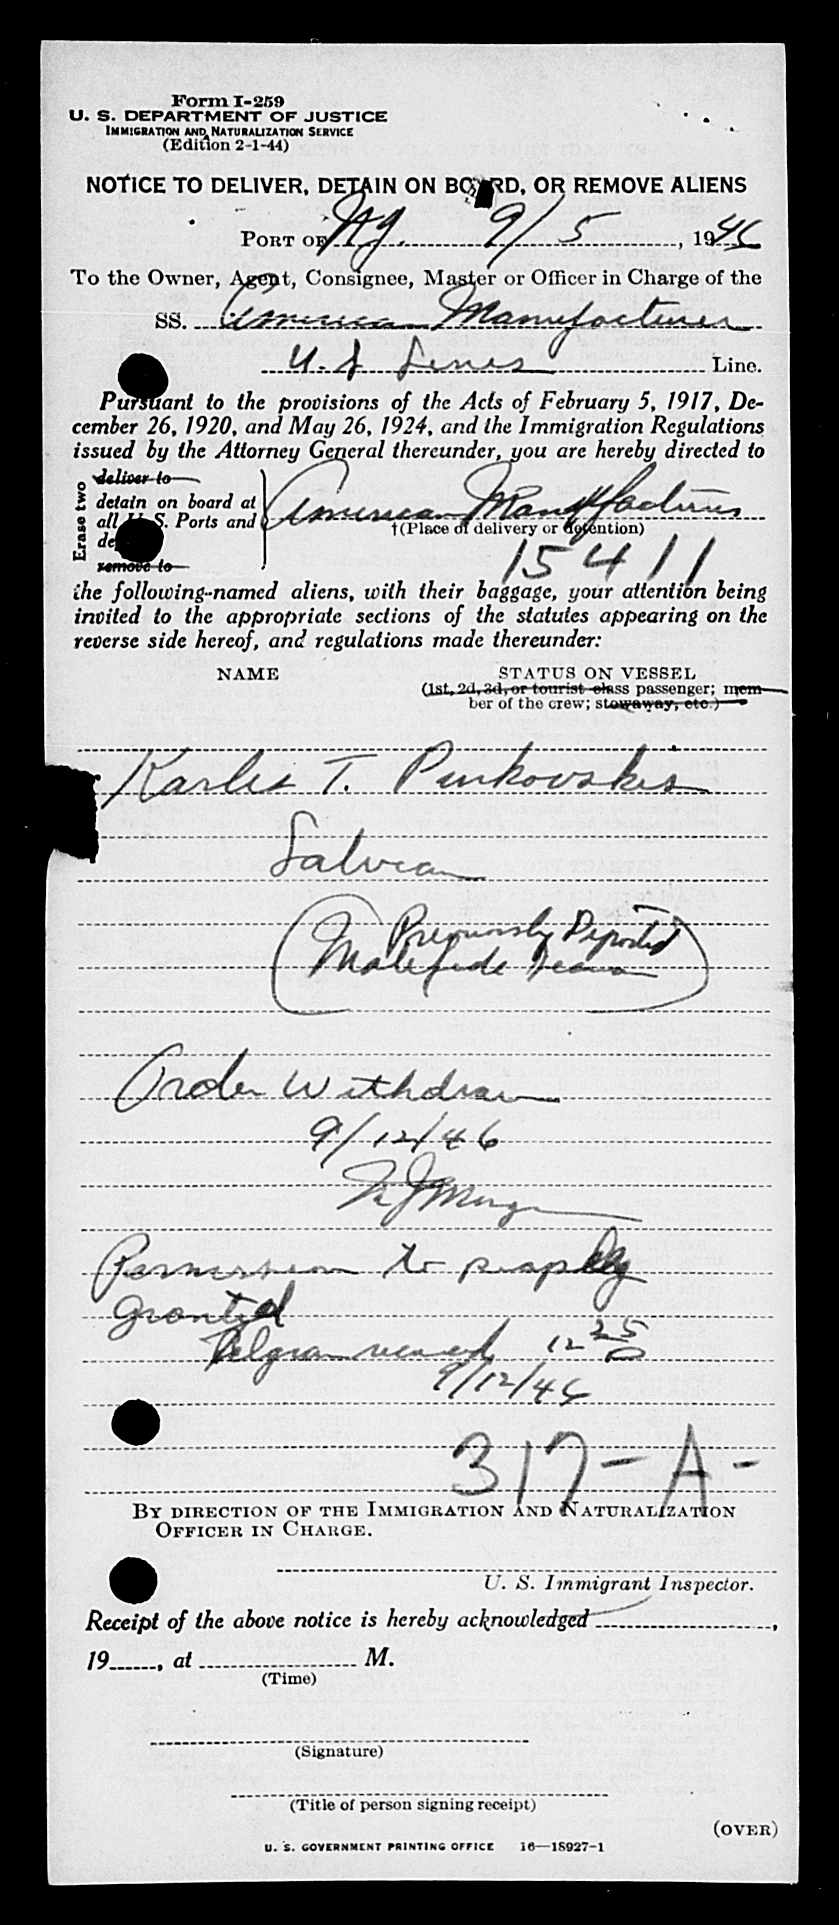 Form I-259
U. S. DEPARTMENT OF JUSTICE
IMMIGRATION AND NATURALIZATION SERVICE
(Edition 2-1-44)
NOTICE TO DELIVER, DETAIN ON BOARD, OR REMOVE ALIENS
PORT OF NY. 9/5, 1946
To the Owner, Agent, Consignee, Master or Officer in Charge of the
SS. American Manufacturer
U. S. Lines Line.
Pursuant to the provisions of the Acts of February 5, 1917, De-
cember 26, 1920, and May 26, 1924, and the Immigration Regulations
issued by the Attorney General thereunder, you are hereby directed to
Erase two
deliver to
detain on board at
all U. S. Ports and
remove to
American Manufacturer
†(Place of delivery or detention)
15411
the following-named aliens, with their baggage, your attention being
invited to the appropriate sections of the statutes appearing on the
reverse side hereof, and regulations made thereunder:
NAME STATUS ON VESSEL
(1st, 2d, 3d, or tourist class passenger; mem-
ber of the crew; stowaway, etc.)
Karlis T. Punkovskis
Latvian
Previously Deported
Malefide
Order Withdrawn
9/12/46
Permission to
granted
Telgram 12 25
9/12/46
317-A-
BY DIRECTION OF THE IMMIGRATION AND NATURALIZATION
OFFICER IN CHARGE.
U. S. Immigrant Inspector.
Receipt of the above notice is hereby acknowledged ,
19 , at M.
(Time)
(Signature)
(Title of person signing receipt)
(OVER)
U. S. GOVERNMENT PRINTING OFFICE 16—18927-1